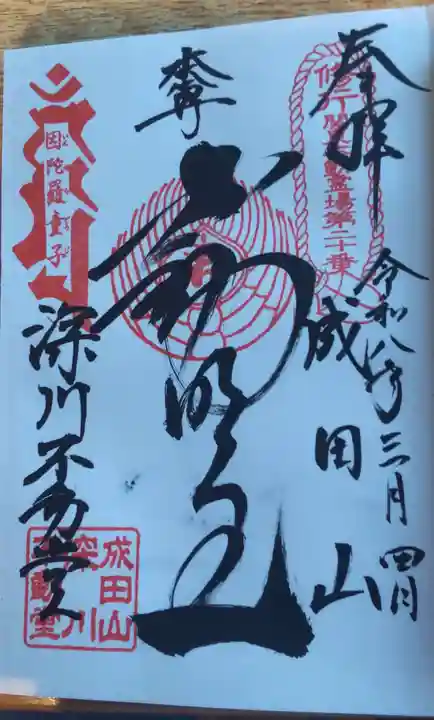 奉拝
令和八年三月四日
修行関東三十六不動霊場第二十番
成田山
本尊
不動明王
因陀羅童子
深川不動堂
成田山
深川
不動堂